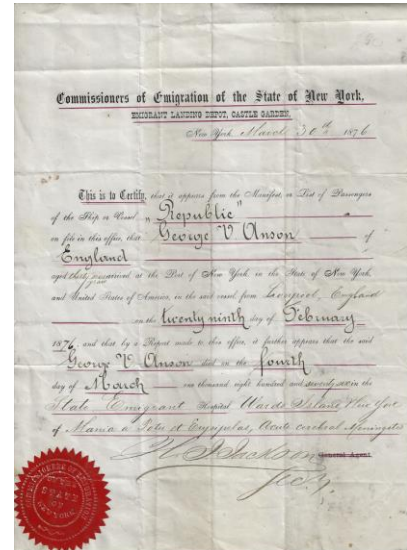 Commissioners of Emigration of the State of New York,
EMIGRANT LANDING DEPOT, CASTLE GARDEN,
New York March 30th 1876
This is to Certify, that it appears from the Manifest, or List of Passengers
of the Ship or Vessel "Republic"
on file in this office, that George V Anson of
England
aged thirty arrived at the Port of New York, in the State of New York,
and United States of America, in the said vessel from England
on the twenty ninth day of February
1876, and that by a Report made to this office, it further appears that the said
George V. Anson died on the fourth
day of March one thousand eight hundred and seventy six in the
State Emigrant Hospital Wards Island New York
of Mania a Potu & Erysipelas, Acute cerebral Meningitis
H J Jackson General Agent.
Secy.